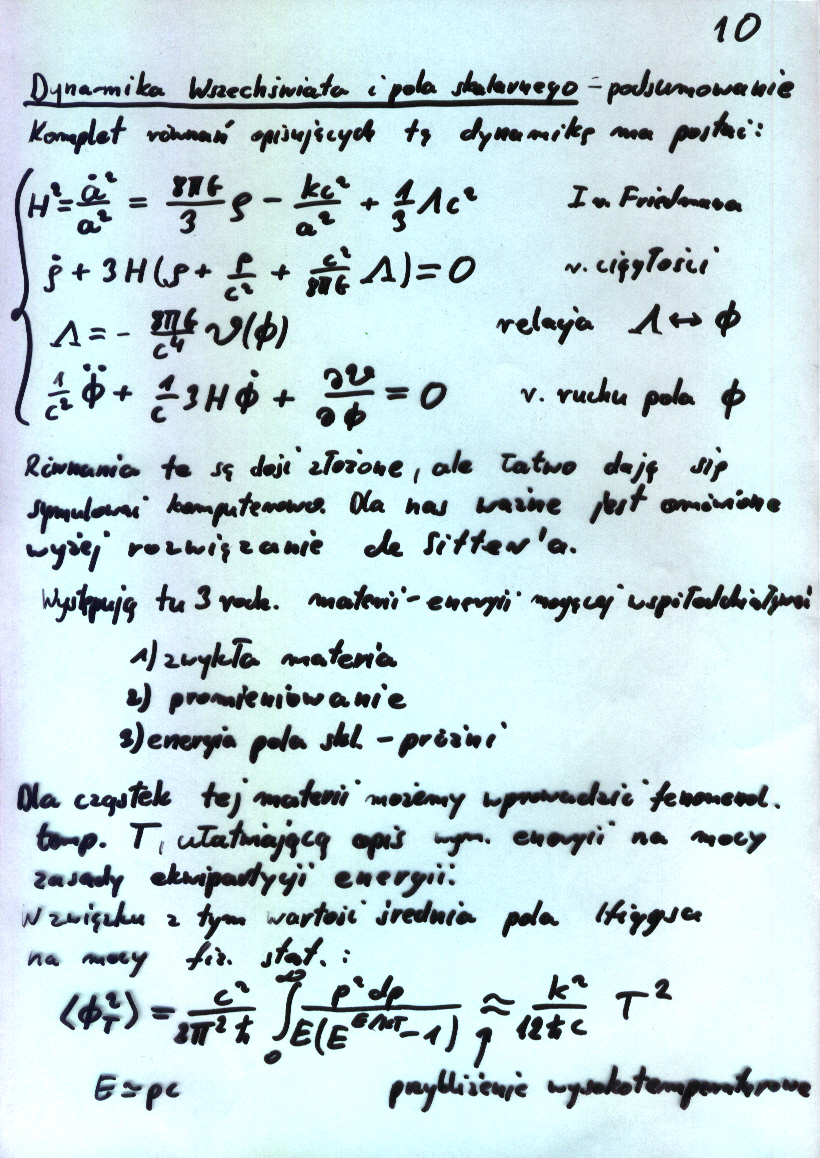 10
Dynamika Wszechświata i pola skalarnego - podsumowanie
Komplet równań opisujących tą dynamikę ma postać:
H² = ȧ²/a² = 8πG/3 ρ - kc²/a² + 1/3 Λc² I r. Friedmana
ρ̇ + 3H(ρ + p/c² + c²/8πG Λ) = 0 r. ciągłości
Λ = - 8πG/c⁴ V(ϕ) relacja Λ ↔ ϕ
1/c² ϕ̈ + 1/c 3Hϕ̇ + ∂V/∂ϕ = 0 r. ruchu pola ϕ
Równania te są dość złożone, ale łatwo dają się
symulować komputerowo. Dla nas ważne jest omówione
wyżej rozwiązanie de Sitter'a.
Występują tu 3 rodz. materii-energii mogącej współoddziaływać
1) zwykła materia
2) promieniowanie
3) energia pola skl. - próżni
Dla cząstek tej materii możemy wprowadzić fenomenol.
temp. T, ułatwiającą opis wym. energii na mocy
zasady ekwipartycji energii.
W związku z tym wartość średnia pola Higgsa
na mocy fiz. stat.:
⟨ϕ_T²⟩ = c²/8π²ħ ∫₀^∞ p²dp/E(E^{E/kT}-1) ≈ k²/12ħc T²
E ≃ pc przybliżenie wysokotemperaturowe